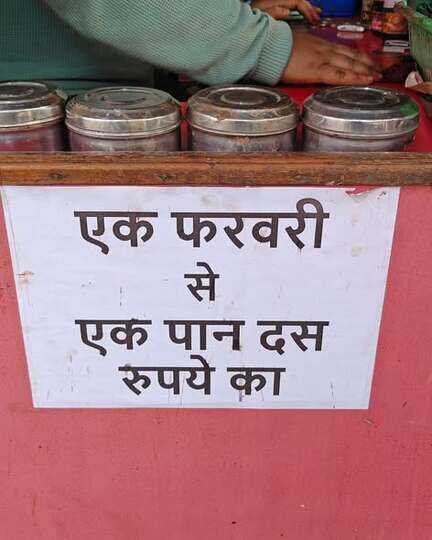 एक फरवरी
से
एक पान दस
रुपये का